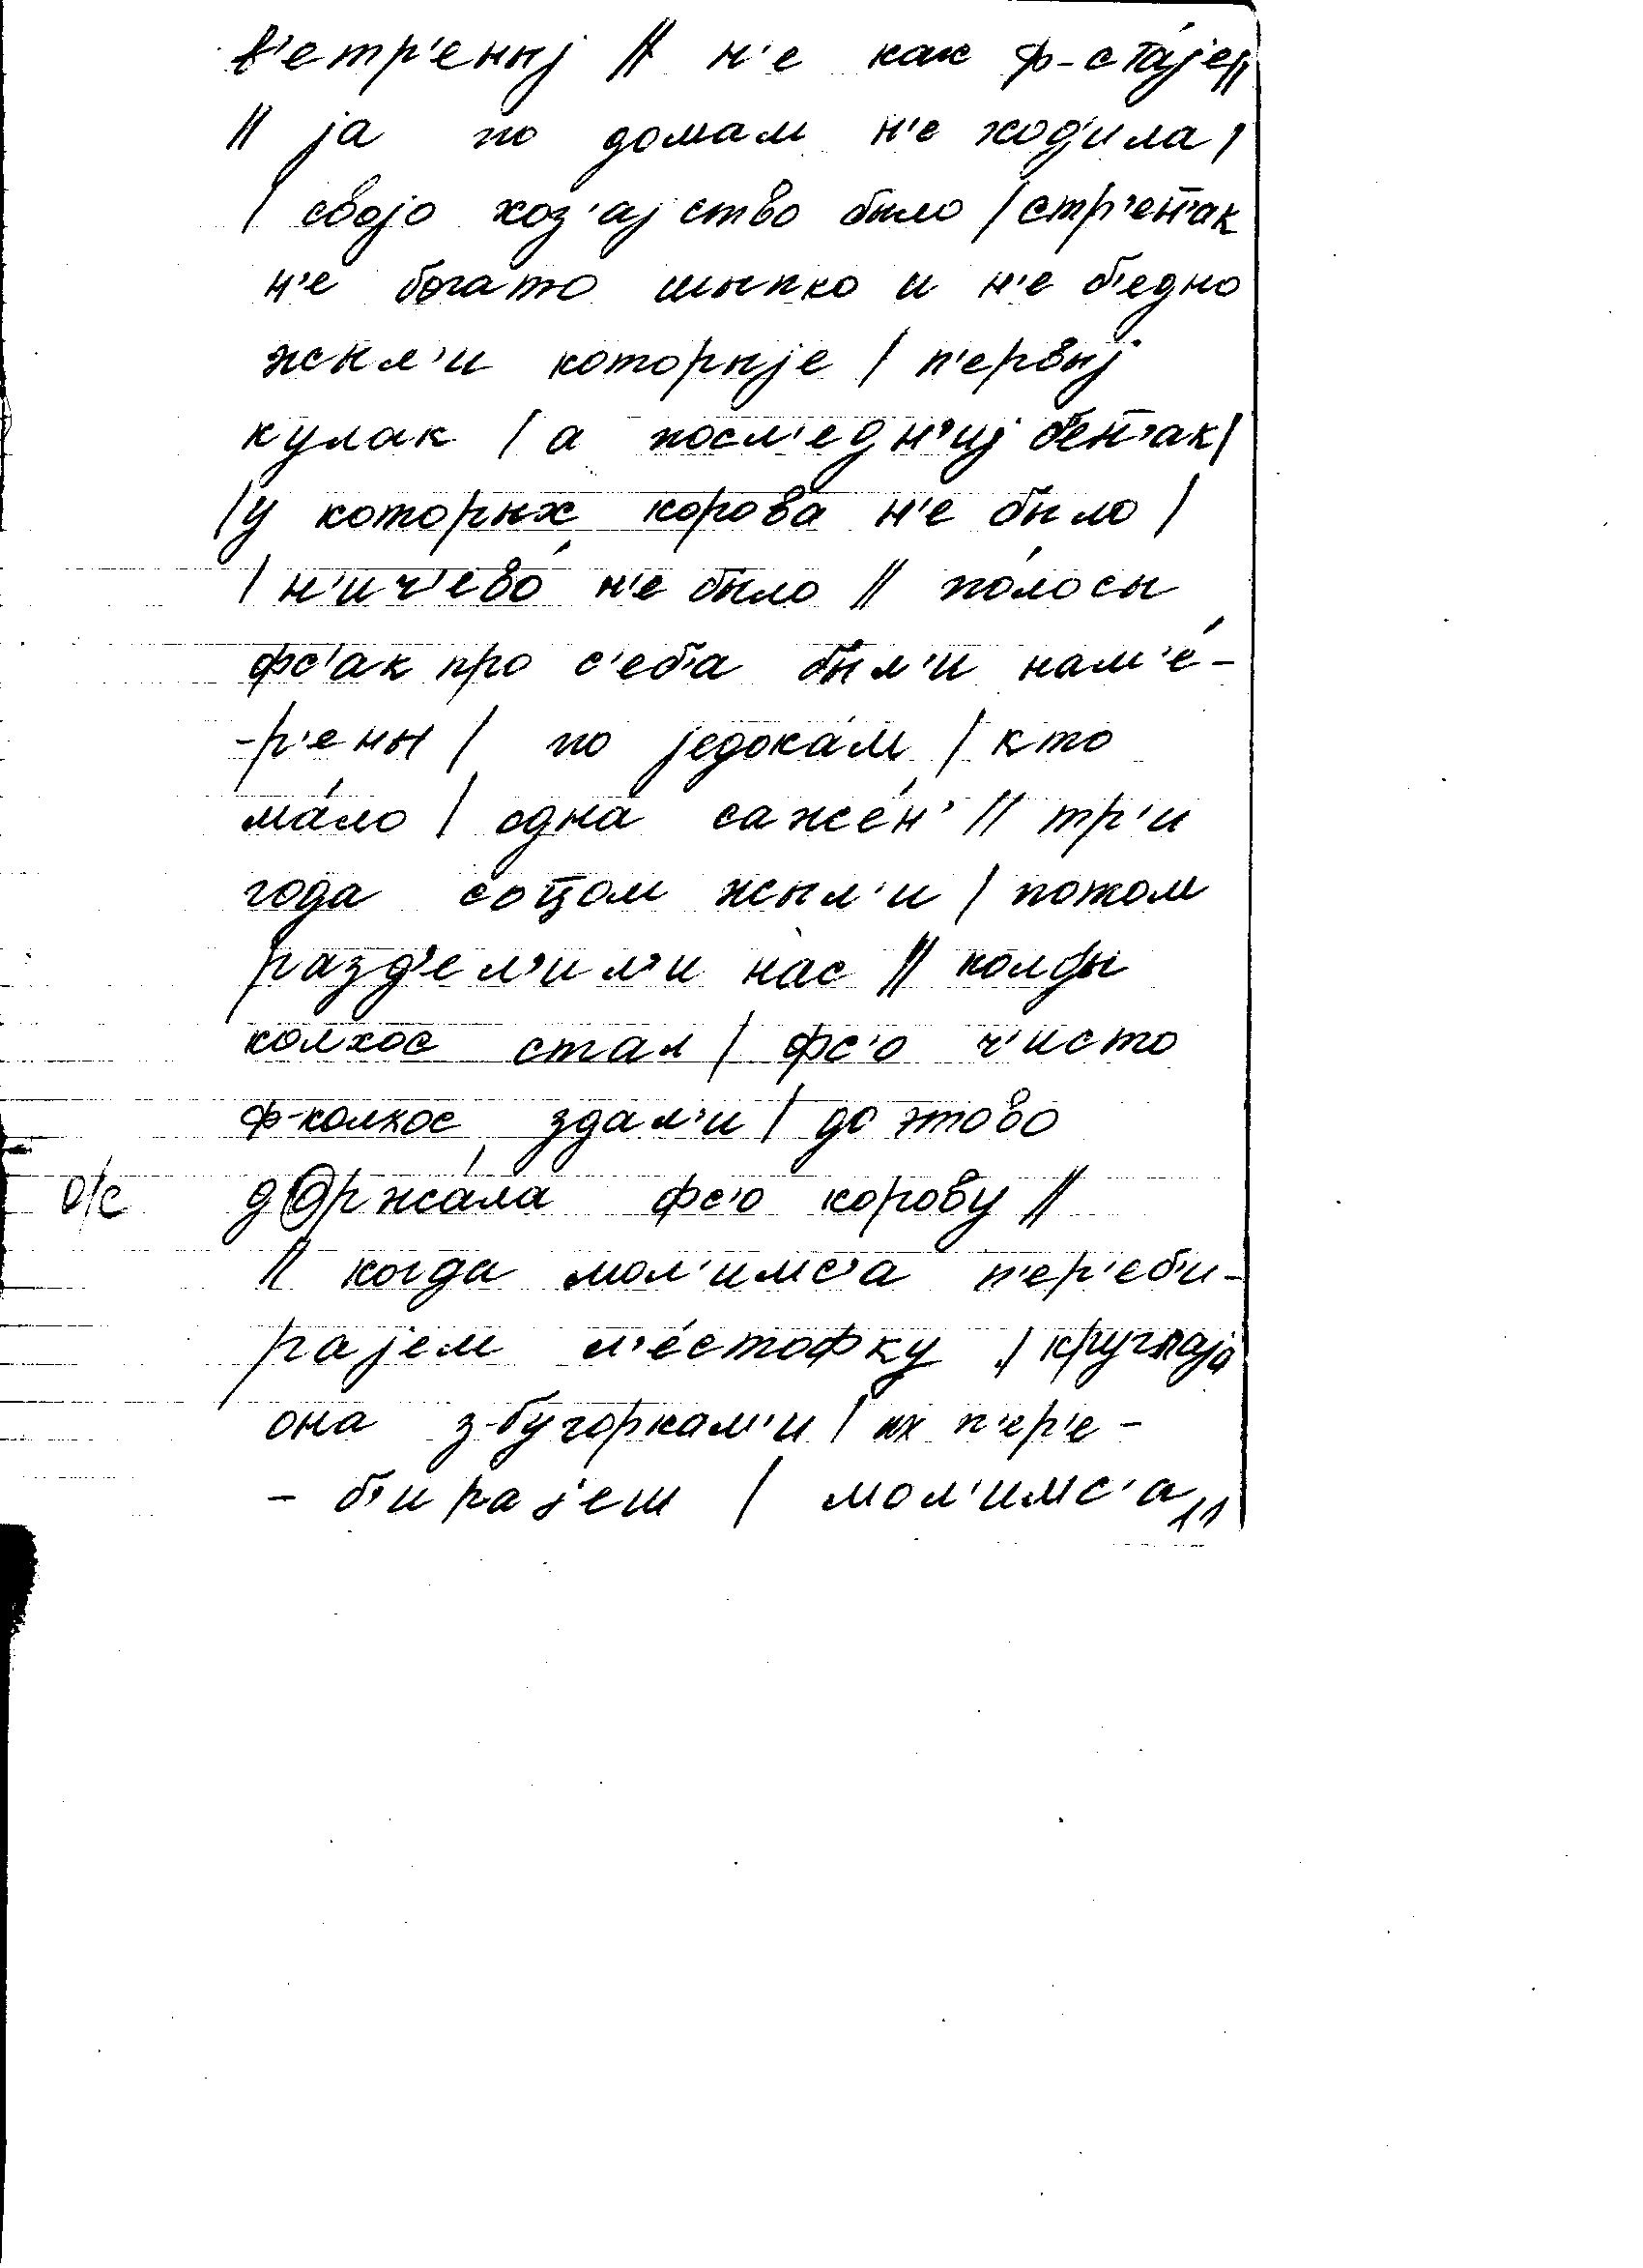 в'етр'еныј // н'е как ф-ста́је //
// ја по домам н'е ход'ила /
/ својо хоз'ајство было / стр'ет̅н'ак
н'е богато шыпко и н'е б'едно
жыл'и которыје / п'ервыј
кулак / а посл'едн'иј
/ у которых корова н'е было /
/ н'ич'ево́ н'е было // по́лосы
фс'ак про с'еб'а был'и нам'е́-
-р'ены / по једока́м / кто
ма́ло / одна́ саже́н' // тр'и
года жыл'и / потом
разд'ел'ил'и нас // колды
колхос стал / фс'о ч'исто
ф-колхос здал'и / до этово
о/с доржа́ла фс'о корову //
// когда мол'имс'а п'ер'еб'и-
рајем л'е́стофку / круглаја
она з-бугоркам'и / их п'ер'е-
- б'ирајеш / мол'имс'а //